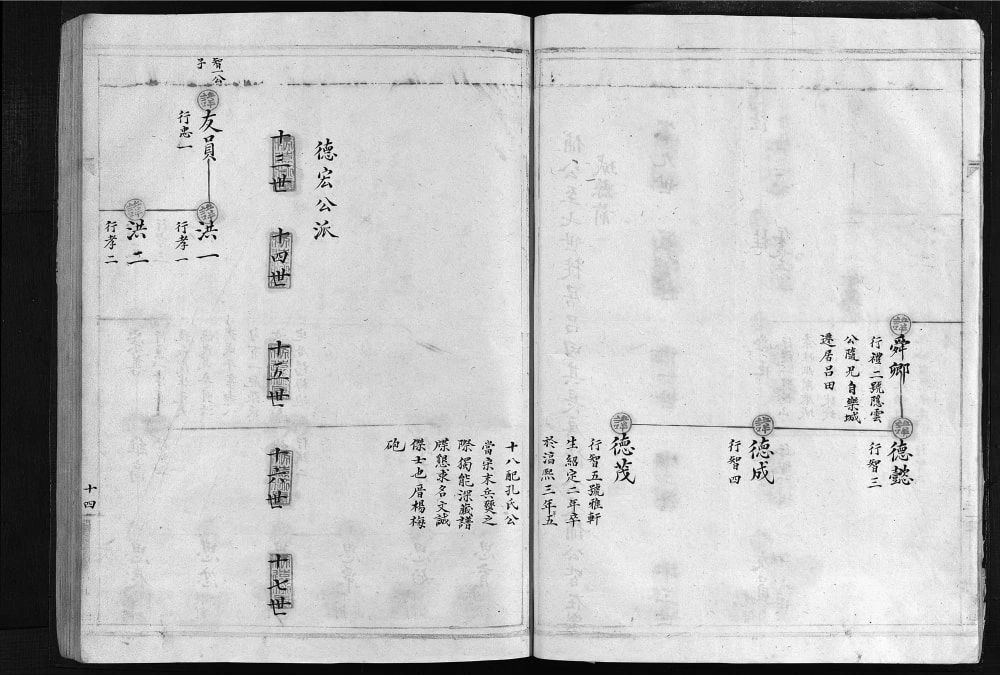 諱
舜卿
行禮二號隱雲
公隨兄自樂城
遷居呂田
諱
德懿
行智三
諱
德成
行智四
諱
德茂
行智五號雅軒
生紹定二年卒
於淳熙三年五
十八配孔氏公
當宋末兵燹之
際獨能深藏譜
牒懇求名文誠
傑士也厝楊梅
砲
德宏公派
十三世
十四世
十五世
十六世
十七世
智一公
子
諱
友員
行忠一
諱
洪一
行孝一
諱
洪二
行孝二
十四